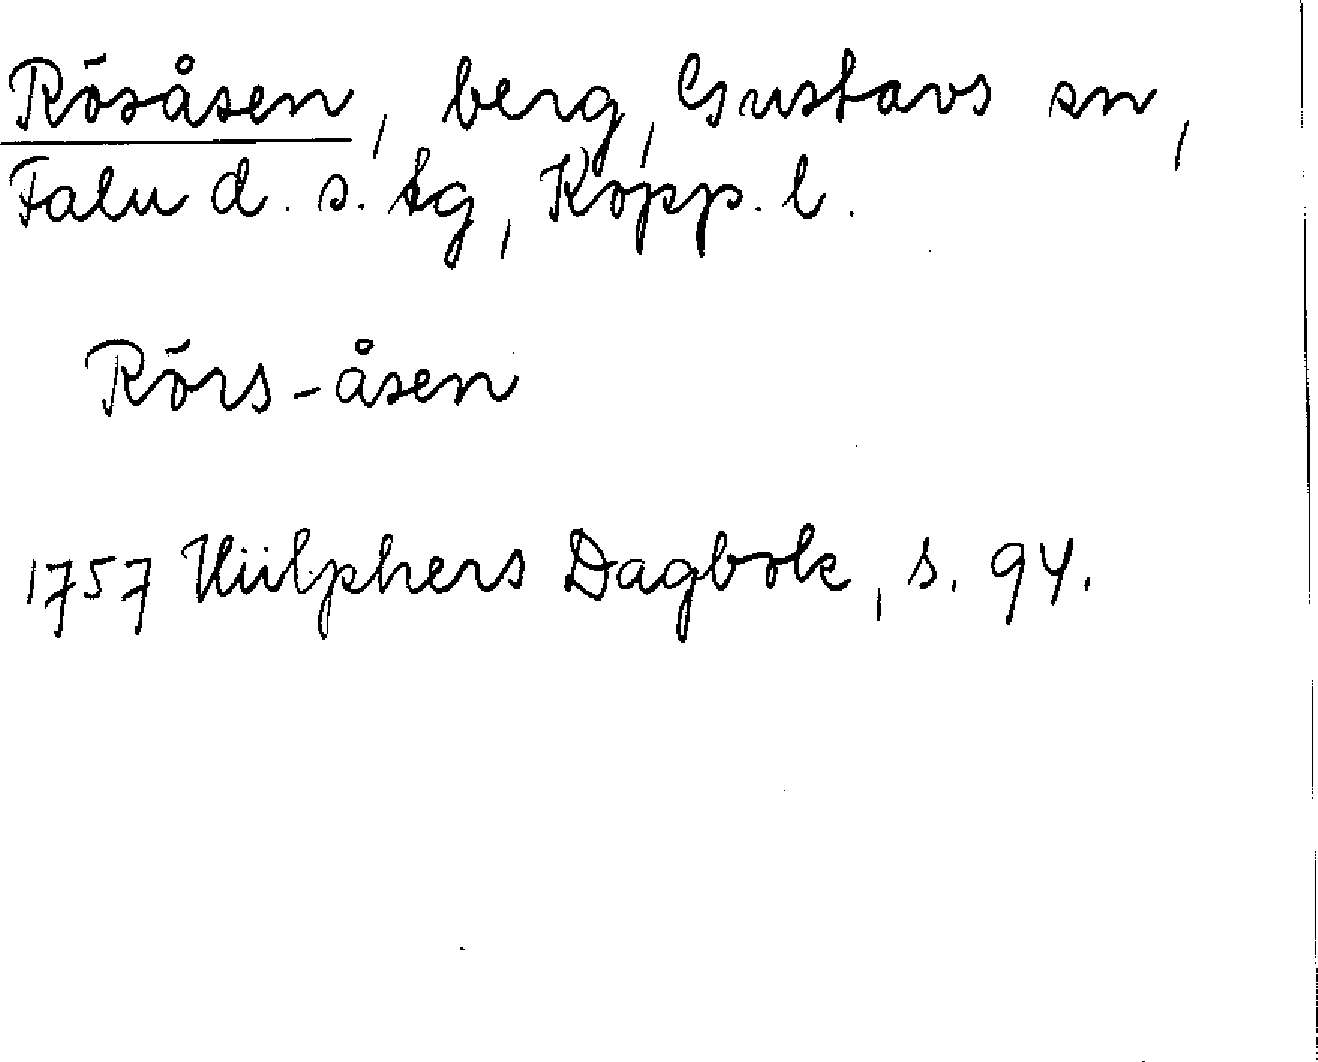 Rösåsen, berg, Gustavs sn,
Falu d. s. tg, Kopp. l.
Rörs-åsen
1757 Hülphers Dagbok, s. 94.